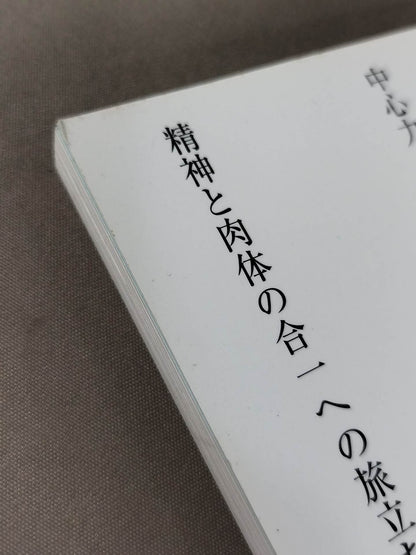 中心力
精神と肉体の合一への旅立